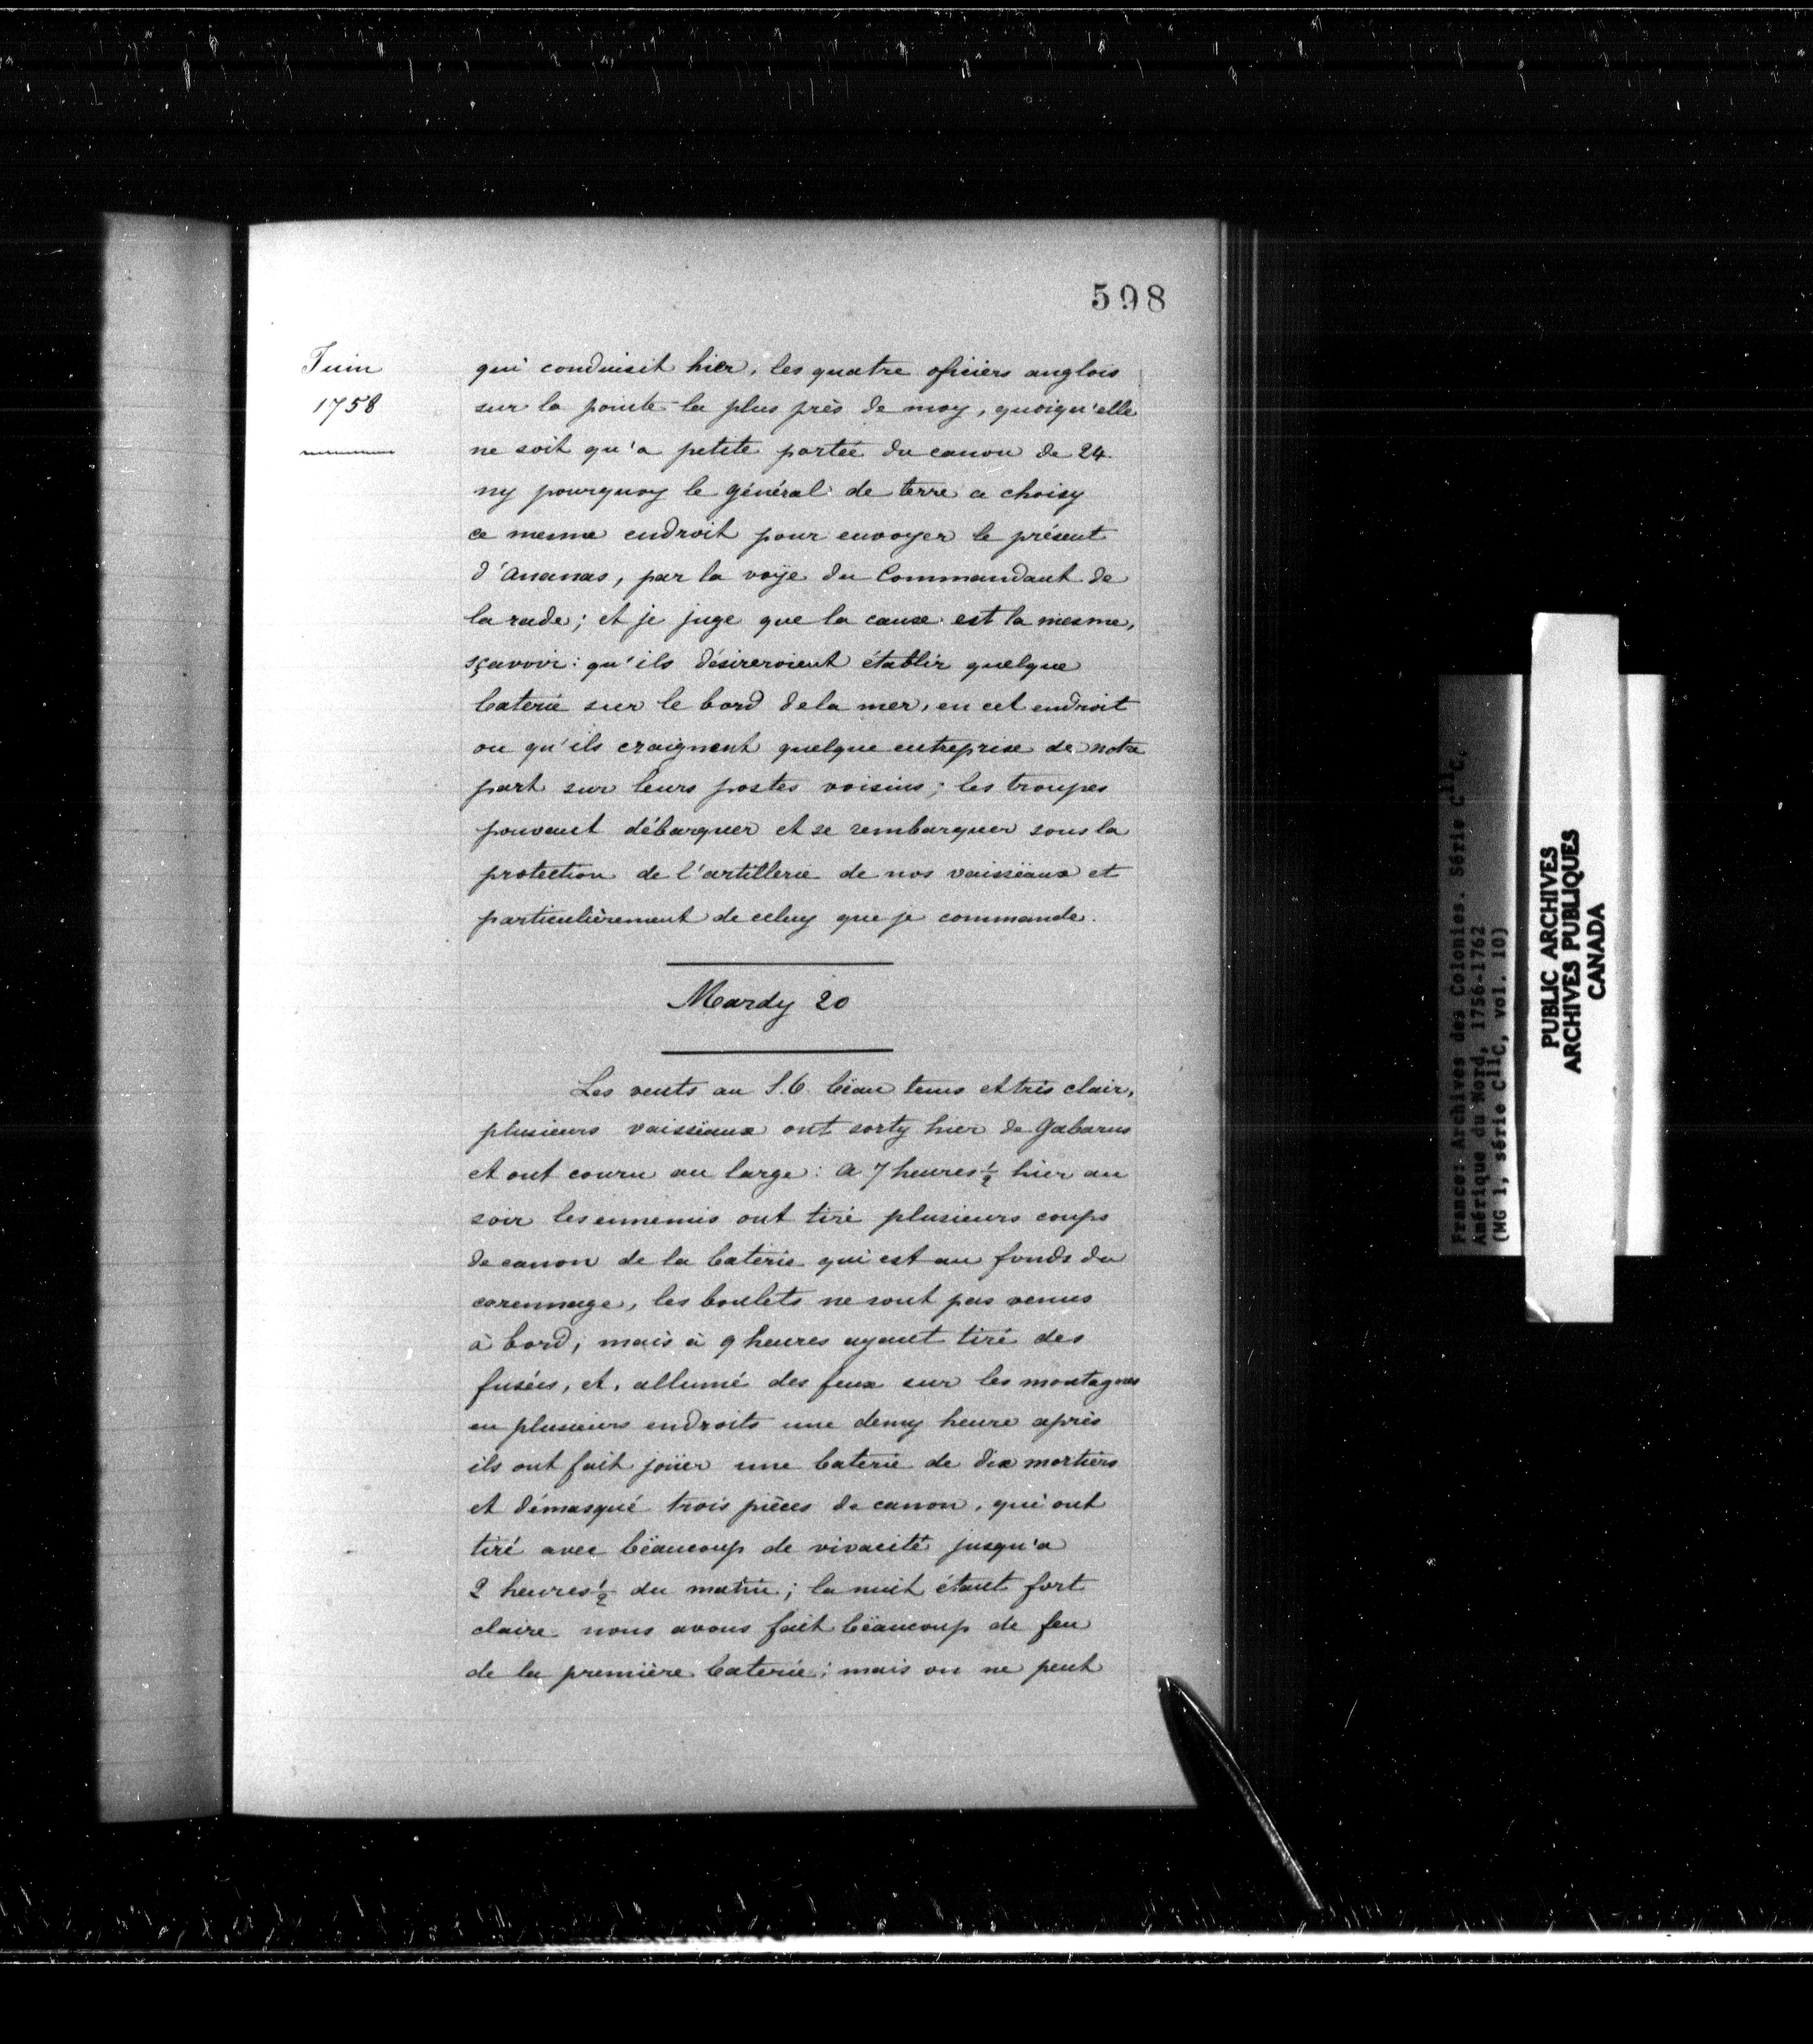 598
Juin
1758
qui conduisit hier, les quatre oficiers anglois
sur la pointe la plus près de moy, quoiqu'elle
ne soit qu'a petite portée du canon de 24.
ny pourquoy le général de terre a choisy
ce mesme endroit pour envoyer le présent
d'Ananas, par la voÿe du Commandant de
la rade; et je juge que la cause est la mesme,
sçavoir: qu'ils désireroient établir quelque
baterie sur le bord de la mer, en cet endroit
ou qu'ils craignent quelque entreprise de notre
part sur leurs postes voisins; les troupes
pouvant débarquer et se rembarquer sous la
protection de l'artillerie de nos vaisseaux et
particulièrement de celuy que je commande.
Mardy 20
Les vents au S.O. bëau tems et très clair,
plusieurs vaissëaux ont sorty hier de Gabarus
et ont couru au large: a 7 heures 1/2 hier au
soir les ennemis ont tiré plusieurs coups
de canon de la baterie qui est au fonds du
carennage, les boulets ne sont pas venus
à bord; mais à 9 heures ayant tiré des
fusées, et, allumé des feux sur les montagnes
en plusieurs endroits une demy heure après
ils ont fait joüer une baterie de dix mortiers
et démasqué trois pièces de canon, qui ont
tiré avec bëaucoup de vivacité jusqu'a
2 heures 1/2 du matin; la nuit étant fort
claire nous avons fait bëaucoup de feu
de la première baterie; mais on ne peut
France: Archives des Colonies. Série C11C,
Amérique du Nord, 1756-1762
(MG 1, série C11C, vol. 10)
PUBLIC ARCHIVES
ARCHIVES PUBLIQUES
CANADA